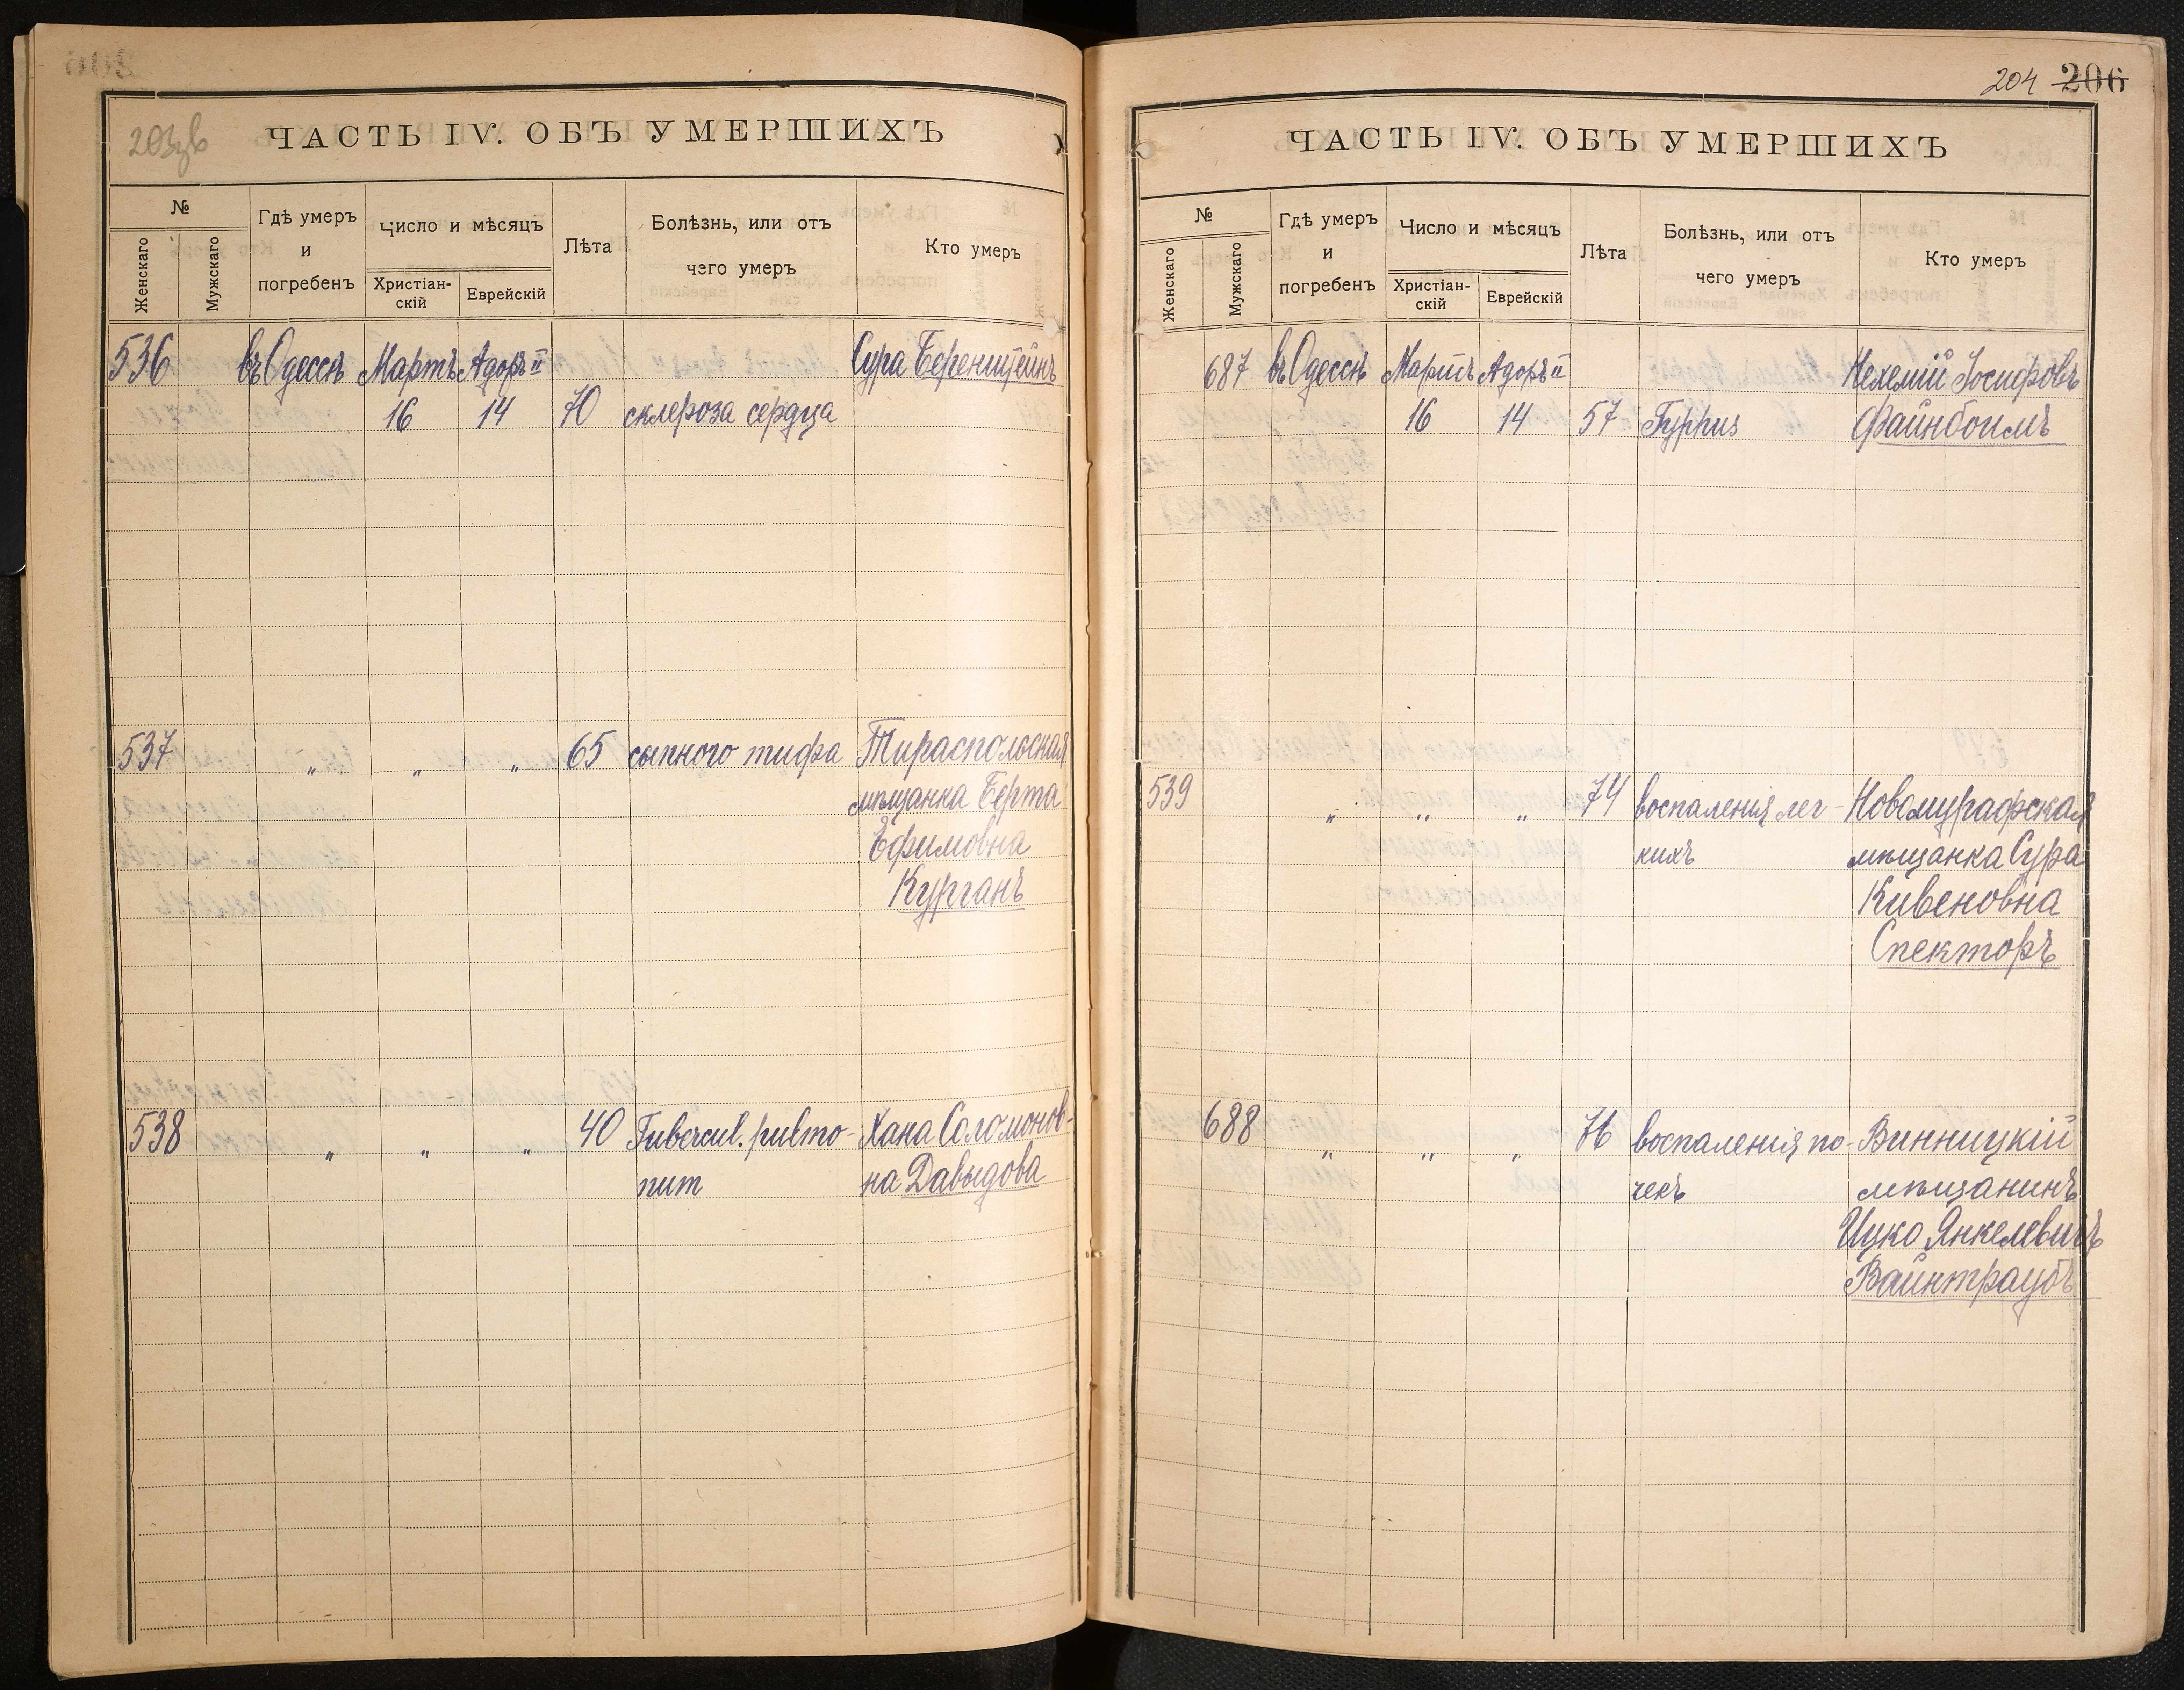 203зв
ЧАСТЬ IV. ОБЪ УМЕРШИХЪ
№
Женскаго
Мужскаго
Гдѣ умеръ
и
погребенъ
Число и мѣсяцъ
Христіан-
скій
Еврейскій
Лѣта
Болѣзнь, или отъ
чего умеръ
Кто умеръ
536 въ Одессѣ Мартъ Адоръ II Сура Беренштейнъ
16 14 70 склероза сердца
537 " " " 65 сыпного тифа Тираспольская
мѣщанка Берта
Ефимовна
Курганъ
538 " " " 40 Tubercul. pulmo- Хана Соломонов-
num на Давыдова
204 206
ЧАСТЬ IV. ОБЪ УМЕРШИХЪ
№
Женскаго
Мужскаго
Гдѣ умеръ
и
погребенъ
Число и мѣсяцъ
Христіан-
скій
Еврейскій
Лѣта
Болѣзнь, или отъ
чего умеръ
Кто умеръ
687 въ Одессѣ Мартъ Адоръ II Нехемій Іосифовъ
16 14 57 Typhus Файнбоимъ
539 " " " 74 воспаленія лег- Новомурафская
кихъ мѣщанка Сура
Кивеновна
Спекторъ
688 " " " 76 воспаленія по- Винницкій
чекъ мѣщанинъ
Ицко Янкелевичъ
Вайнтраубъ